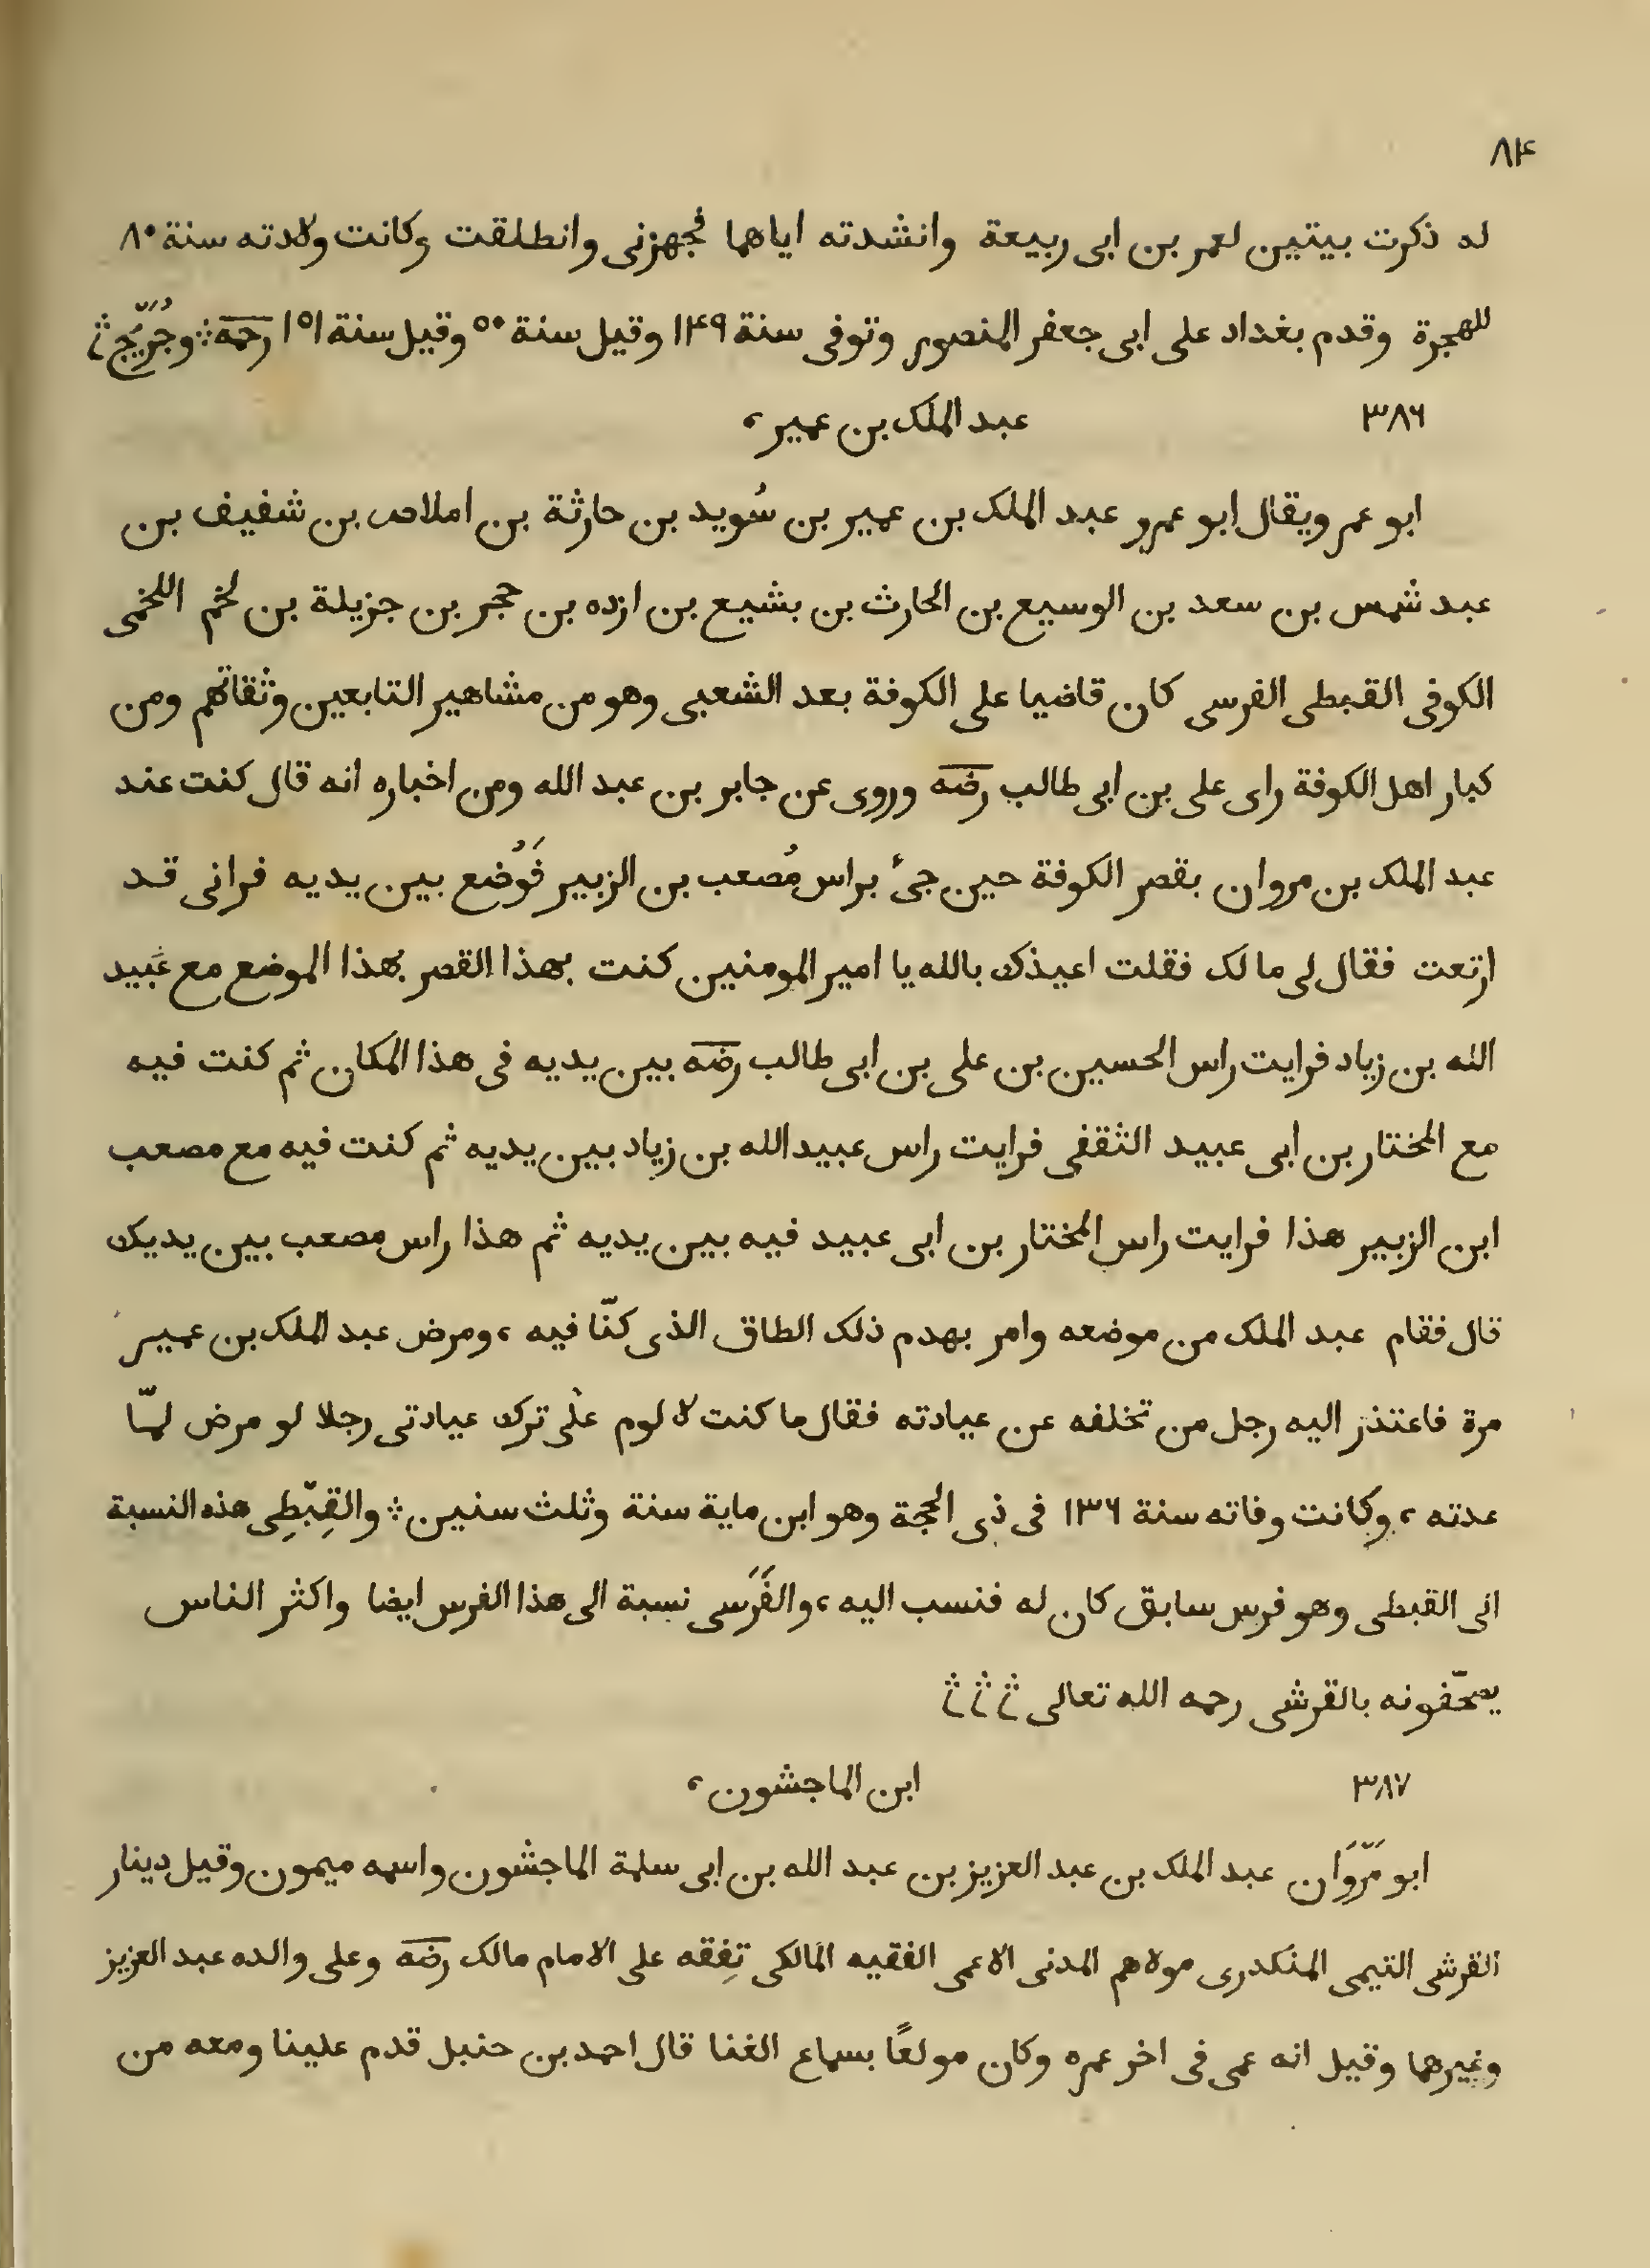 ٨۴
له ذكرت بيتين لعمر بن ابى ربيعة وانشدته اياهما فجهزنى وانطلقت وكانت ولادته سنة ٨٠
للهجرة وقدم بغداد على ابى جعفر المنصور وتوفى سنة ١۴٩ وقيل سنة ٥٠ وقيل سنة ١٥١ رحمه ؞ وجُرَيْج ؞
٣٨٦ عبد الملك بن عمير ،
ابو عمر ويقال ابو عمرو عبد الملك بن عمير بن سُويد بن حارثة بن املاص بن شفيف بن
عبد شمس بن سعد بن الوسيع بن الحارث بن بشيع بن ازده بن حجر بن جزيلة بن لخم اللخمى
الكوفى القبطى الفرسى كان قاضيا على الكوفة بعد الشعبى وهو من مشاهير التابعين وثقاتهم ومن
كبار اهل الكوفة راى على بن ابى طالب رضه وروى عن جابر بن عبد الله ومن اخباره انه قال كنت عند
عبد الملك بن مروان بقصر الكوفة حين جئ براس مُصعب بن الزبير فَوُضع بين يديه فرانى قد
ارتعت فقال لى ما لك فقلت اعيذك بالله يا امير المومنين كنت بهذا القصر بهذا الموضع مع عُبيد
الله بن زياد فرايت راس الحسين بن على بن ابى طالب رضه بين يديه فى هذا المكان ثم كنت فيه
مع المختار بن ابى عبيد الثقفى فرايت راس عبيد الله بن زياد بين يديه ثم كنت فيه مع مصعب
ابن الزبير هذا فرايت راس المختار بن ابى عبيد فيه بين يديه ثم هذا راس مصعب بين يديك
قال فقام عبد الملك من موضعه وامر بهدم ذلك الطاق الذى كنّا فيه ، ومرض عبد الملك بن عمير
مرة فاعتذر اليه رجل من تخلفه عن عيادته فقال ما كنت لالوم على ترك عيادتى رجلا لو مرض لمّا
عدته ، وكانت وفاته سنة ١٣٦ فى ذى الحجة وهو ابن ماية سنة وثلث سنين ؞ والقِبْطِى هذه النسبة
الى القبطى وهو فرس سابق كان له فنسب اليه ، والفَرَسى نسبة الى هذا الفرس ايضا واكثر الناس
يصحّفونه بالقرشى رحمه الله تعالى ؞ ؞ ؞
٣٨٧ ابن الماجشون ،
ابو مَرْوَان عبد الملك بن عبد العزيز بن عبد الله بن ابى سلمة الماجشون واسمه ميمون وقيل دينار
القرشى التيمى المنكدرى مولاهم المدنى الاعمى الفقيه المالكى تفقه على الامام مالك رضه وعلى والده عبد العزيز
وغيرهما وقيل انه عمى فى اخر عمره وكان مولعًا بسماع الغنا قال احمد بن حنبل قدم علينا ومعه من